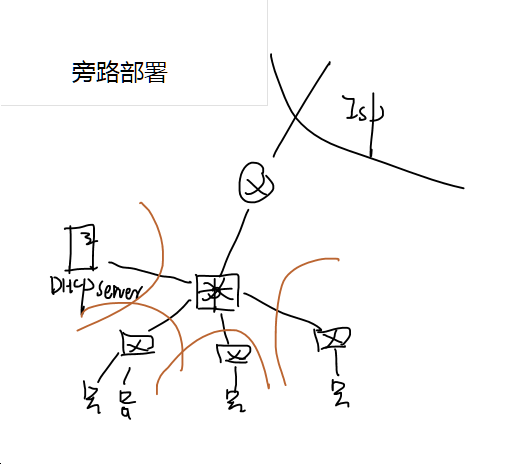 旁路部署
Isp
DHcp server